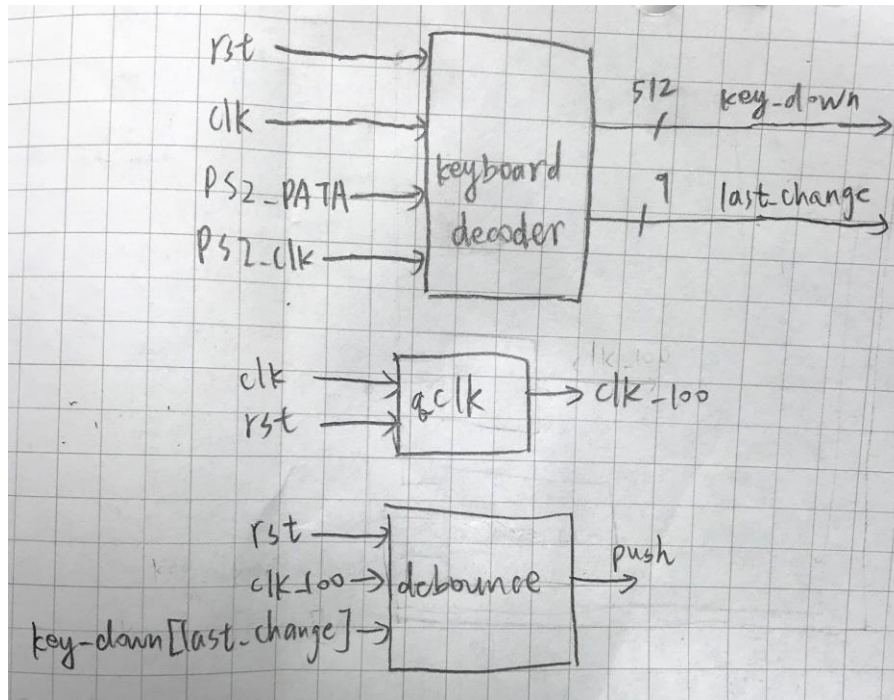 rst
clk
PS2_PATA
PS2_clk
keyboard
decoder
512
key_down
9
last_change
clk
rst
qclk
clk_100
rst
clk_100
key_down[last_change]
debounce
push